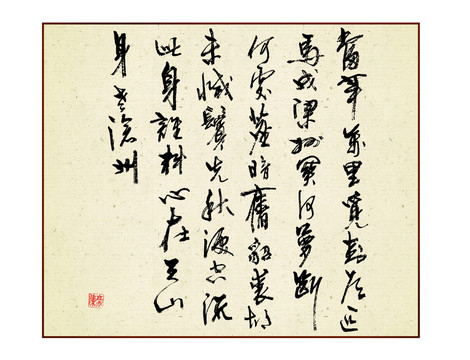 當年萬里覓封侯匹
馬戍梁州關河夢斷
何處塵暗舊貂裘胡
未滅鬢先秋淚空流
此身誰料心在天山
身老滄州